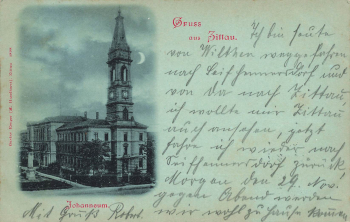 Gruss
aus Zittau.
Ich bin heute
von Wilthen weggefahren
nach Seifhennersdorf und
von Da nach Zittau,
ich wollte mir Zittau
auch ansehen, jetzt
fahre ich wieder nach
Seifhennersdorf zurück
Morgen den 29. Nov.
gegen Abend werden
wir wohl zu Hause kom.
Mit Gruß
Johanneum.